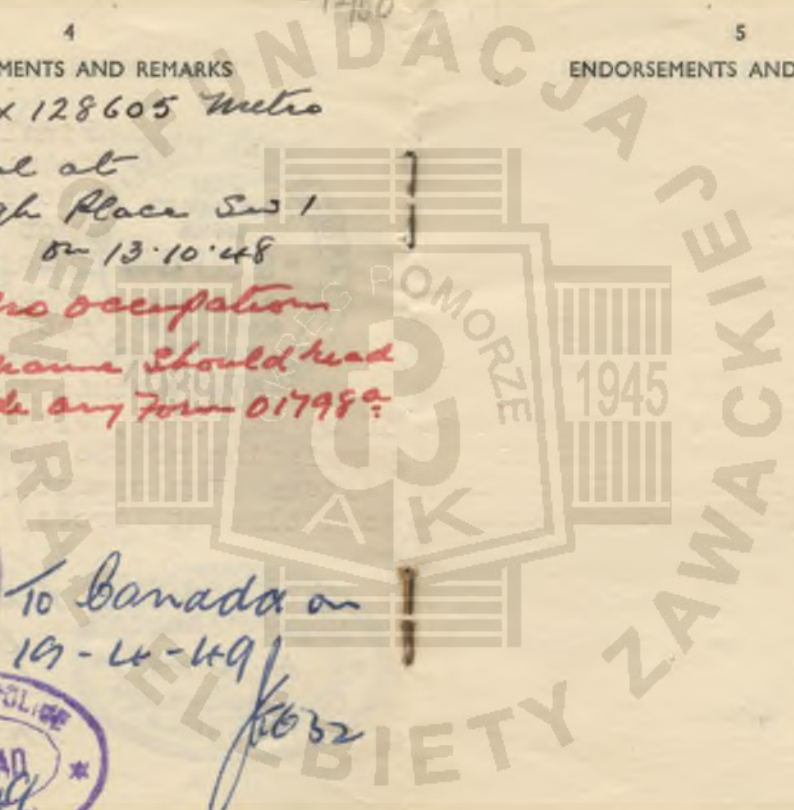 4
MENTS AND REMARKS
x 128605 Metro
at
Place SW 1
on 13.10.48
occupation
should read
any Form 01798a
To Canada on
19-4-49
5
ENDORSEMENTS AND
FUNDACJA GENERAŁ ELŻBIETY ZAWACKIEJ
POMORZE
1939
1945
AK